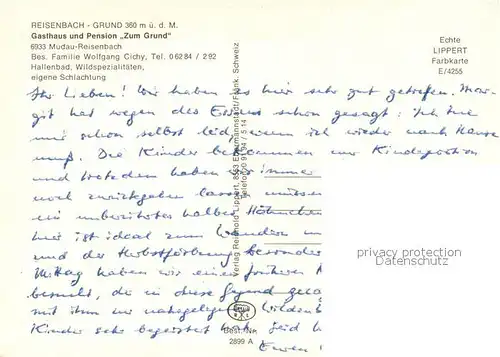 REISENBACH - GRUND 360 m ü. d. M.
Gasthaus und Pension „Zum Grund"
6933 Mudau-Reisenbach
Bes. Familie Wolfgang Cichy, Tel. 0 62 84 / 2 92
Hallenbad, Wildspezialitäten,
eigene Schlachtung
Echte
LIPPERT
Farbkarte
E/4255
Ihr Lieben! Wir haben es hier sehr gut getroffen. Mar-
git hat wegen des Essens schon gesagt: Ich tue
mir schon selbst leid, wenn ich wieder nach Hause
muß. Die Kinder bekommen nur Kinderportion
und trotzdem haben wir immer
noch zurückgehen lassen müssen
ein halbes Hähnchen
hier ist ideal zum Wandern
und die Herbstfärbung besonders
Mittag haben wir einen früheren
besucht, der in diese Gegend
mit ihm im nahegelegenen
Kinder sehr begeistert hat. Seid
Euren
Verlag Reinhold Lippert, 8553 Ebermannstadt/Fränk. Schweiz
Telefon 0 91 94 / 5 14
Best. Nr.
2899 A
privacy protection
Datenschutz